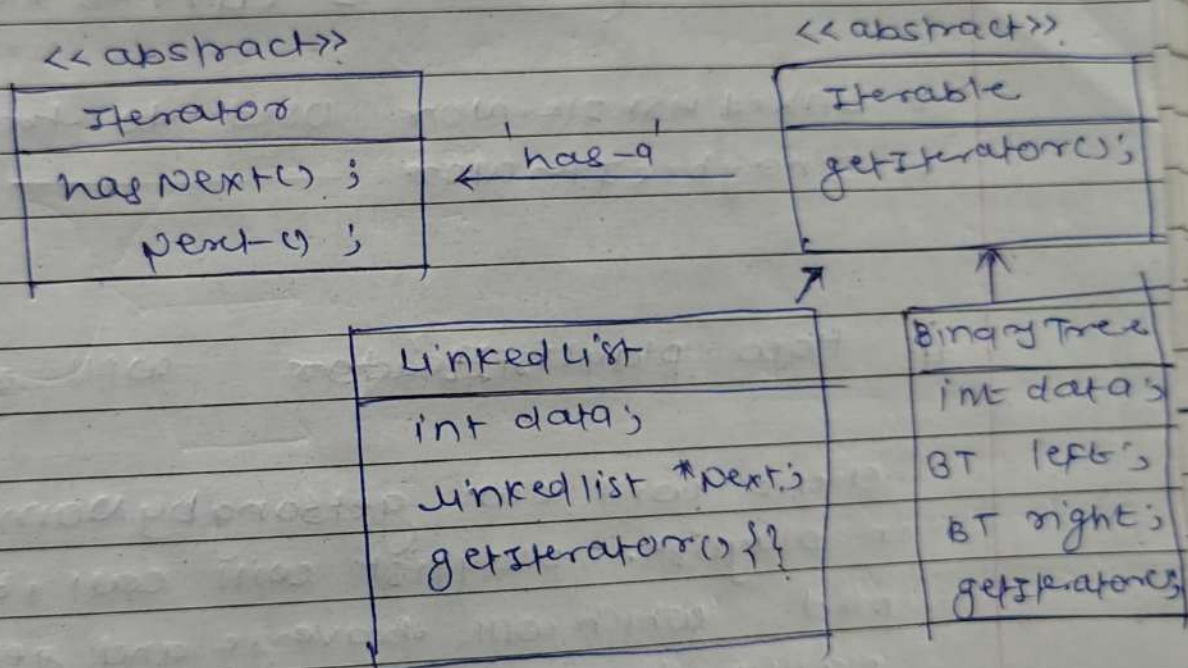 <<abstract>>
Iterator
hasNext() ;
Next() ;
'has-a'
<<abstract>>
Iterable
getIterator();
Linked List
int data;
Linked list *Next;
getIterator() {}
Binary Tree
int data;
BT left;
BT right;
getIterator();